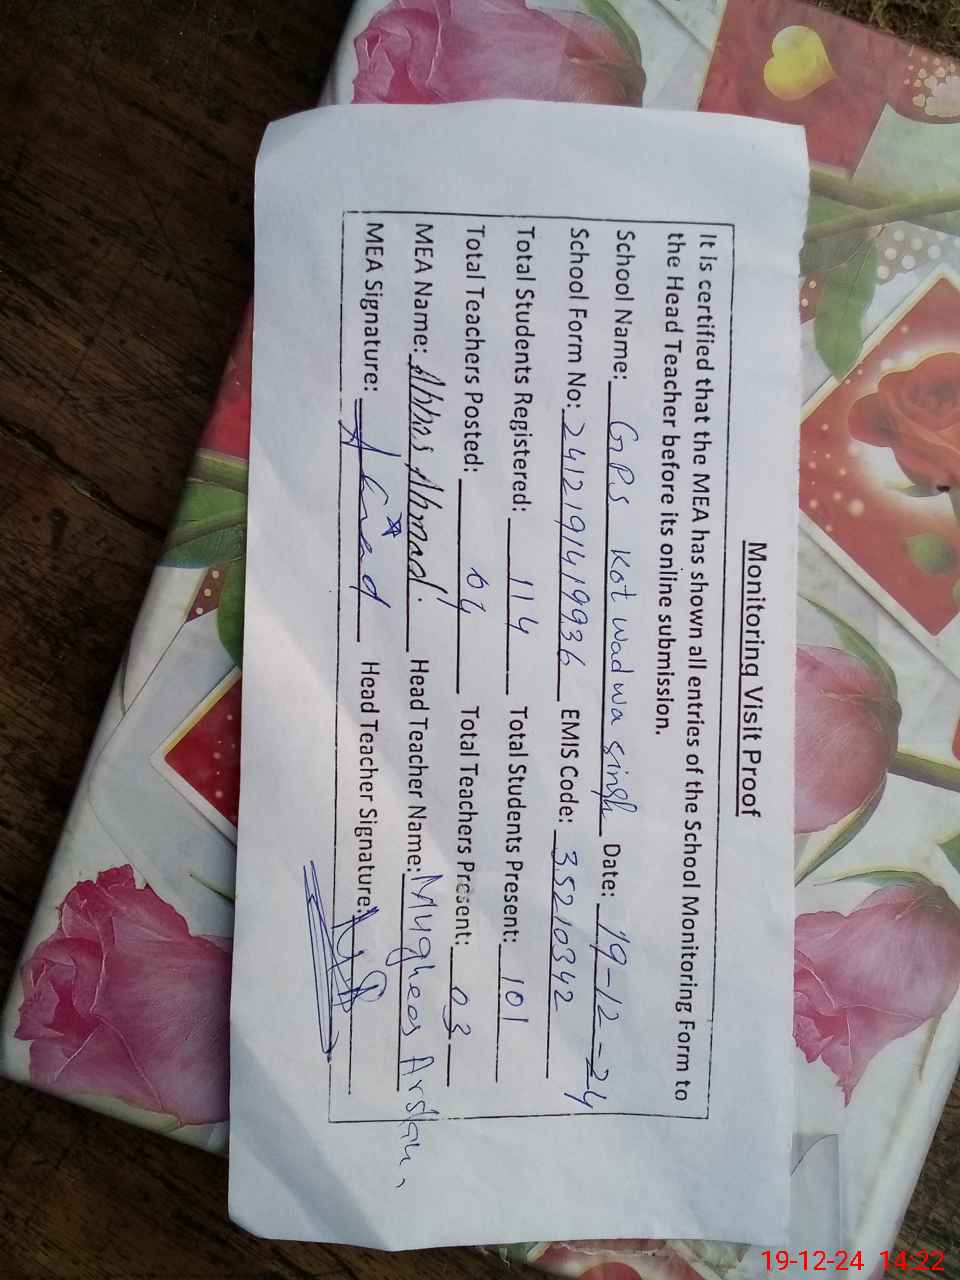 Monitoring Visit Proof
It is certified that the MEA has shown all entries of the School Monitoring Form to
the Head Teacher before its online submission.
School Name: GPS Kot wadwa singh Date: 19-12-24
School Form No: 2412191419936 EMIS Code: 35210342
Total Students Registered: 114 Total Students Present: 101
Total Teachers Posted: 04 Total Teachers Present: 03
MEA Name: Abbas Ahmad. Head Teacher Name: Mughees Arslan
MEA Signature: Head Teacher Signature:
19-12-24 14:22